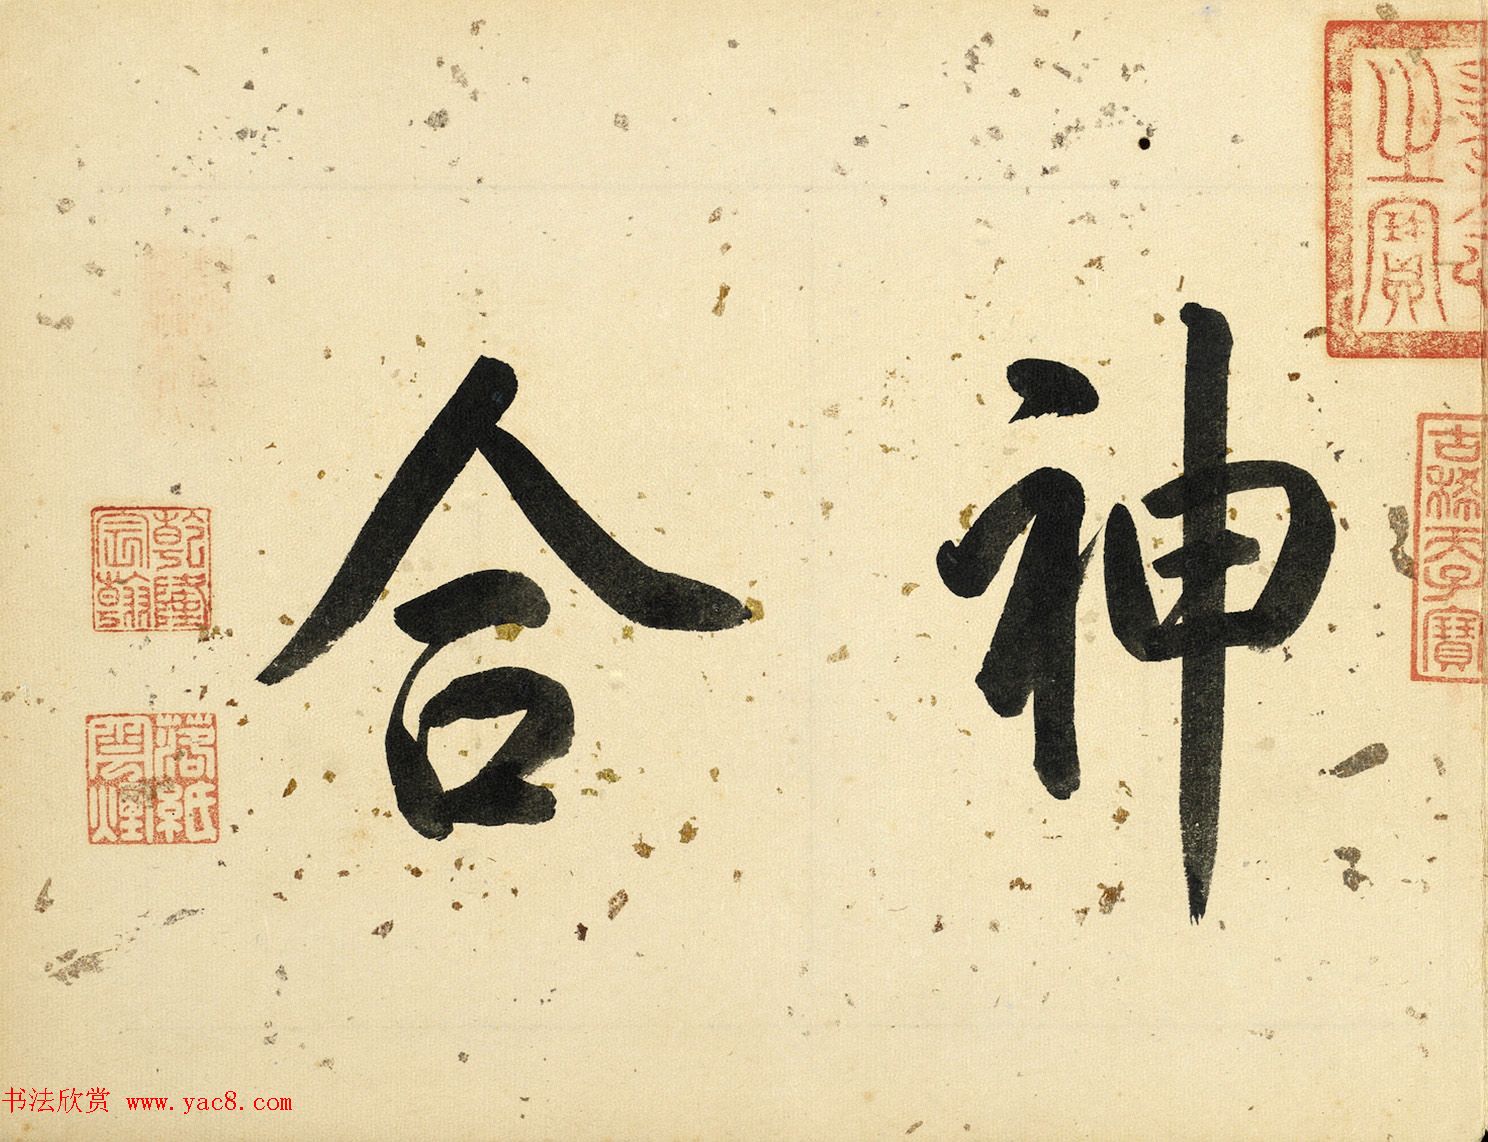 神合
古稀天子之寶
乾隆宸翰
落紙雲煙
书法欣赏 www.yac8.com